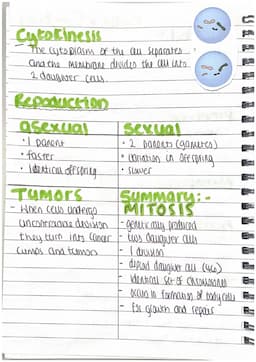 Cytokinesis
The cytoplasm of the cell separates
and the membrane divides the cell into
2 daughter cells.
Reproduction
asexual
• 1 parent
• faster
• Identical offspring
sexual
• 2 parents (gametes)
• variation in offspring
• slower
Tumors
- When cells undergo
uncontrolled division
they turn into cancer
lumps and tumors
Summary:-
MITOSIS
- genetically produced
- two daughter cells
- 1 division
- diploid daughter cell
- identical set of chromosomes
- occurs in formation of body cells
- for growth and repair